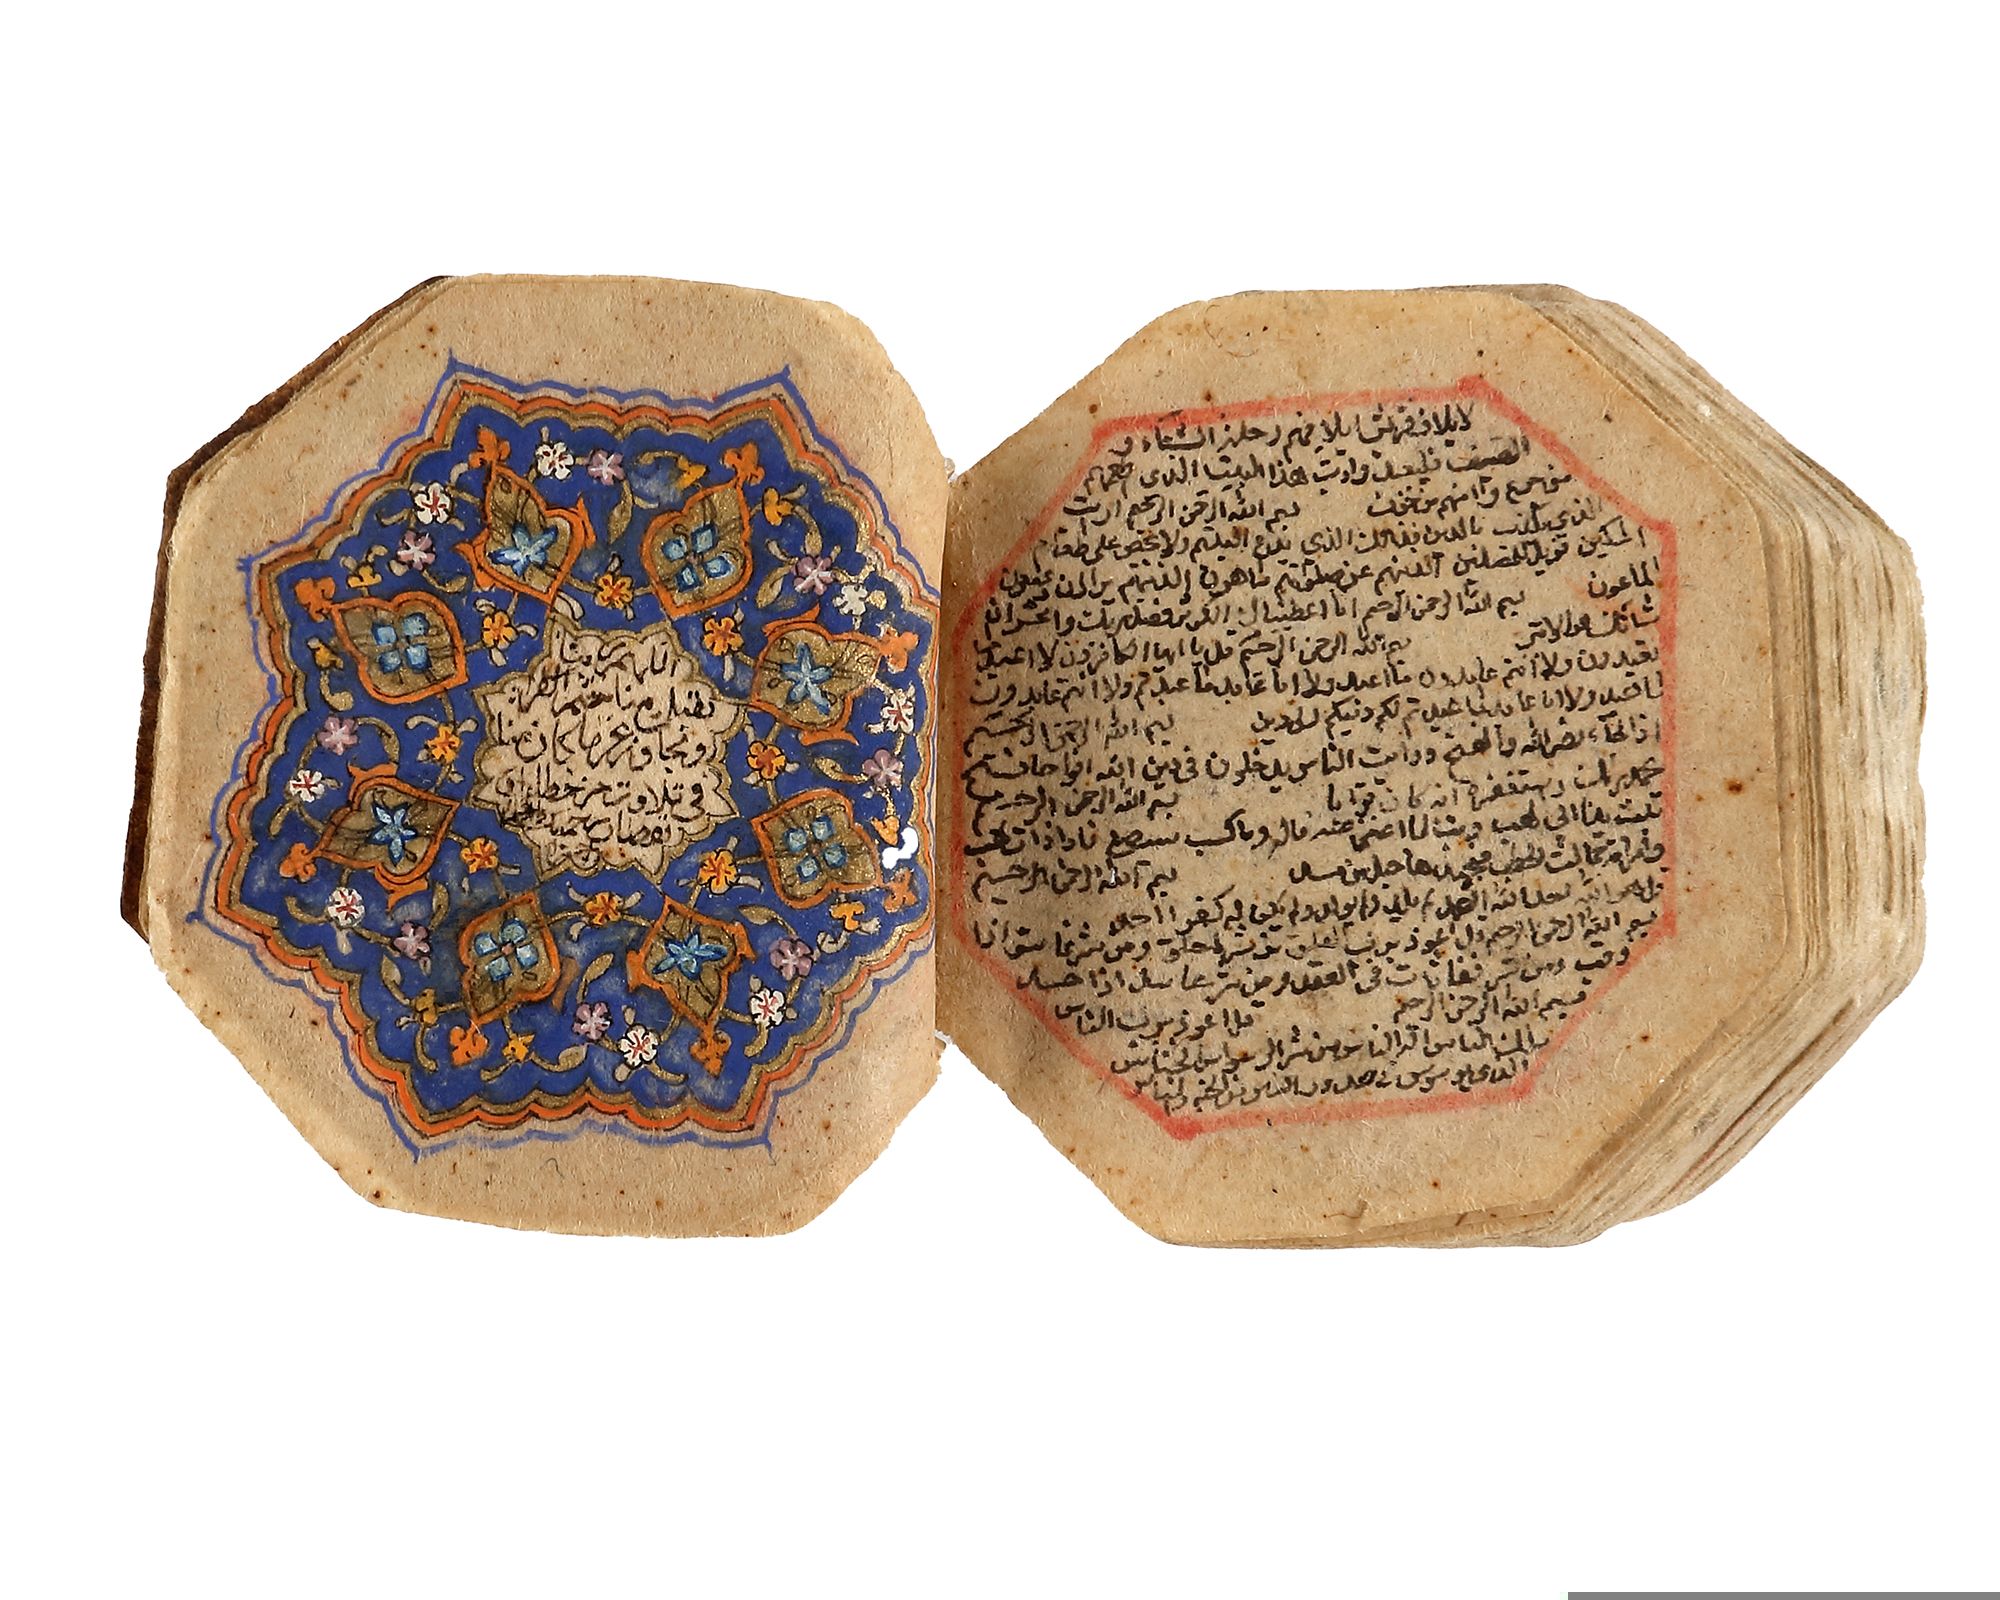 لايلاف قريش ايلافهم رحلة الشتاء و
الصيف فليعبدوا رب هذا البيت الذي اطعمهم
من جوع وآمنهم من خوف بسم الله الرحمن الرحيم ارايت
الذي يكذب بالدين فذلك الذي يدع اليتيم ولا يحض على طعام
المسكين فويل للمصلين الذينهم عن صلوتهم ساهون الذينهم يراؤن ويمنعون
الماعون بسم الله الرحمن الرحيم انا اعطيناك الكوثر فصل لربك وانحر ان
شانئك هو الابتر بسم الله الرحمن الرحيم قل يا ايها الكافرون لا اعبد ما
تعبدون ولا انتم عابدون ما اعبد ولا انا عابد ما عبدتم ولا انتم عابدون
ما اعبد لكم دينكم ولى دين بسم الله الرحمن الرحيم
اذا جاء نصر الله والفتح ورايت الناس يدخلون في دين الله افواجا فسبح
بحمد ربك واستغفره انه كان توابا بسم الله الرحمن الرحيم
تبت يدا ابي لهب وتب ما اغنى عنه ماله وما كسب سيصلى نارا ذات لهب
وامراته حمالة الحطب في جيدها حبل من مسد بسم الله الرحمن الرحيم
قل هو الله احد الله الصمد لم يلد ولم يولد ولم يكن له كفوا احد
بسم الله الرحمن الرحيم قل اعوذ برب الفلق من شر ما خلق ومن شر غاسق اذا
وقب ومن شر النفاثات في العقد ومن شر حاسد اذا حسد
بسم الله الرحمن الرحيم قل اعوذ برب الناس
ملك الناس اله الناس من شر الوسواس الخناس
الذي يوسوس في صدور الناس من الجنة والناس
اللهم ربنا
يا منزل القرآن
بفضلك
وتجاوز عن ما كان منا
في تلاوته من خطاء او
نقصان